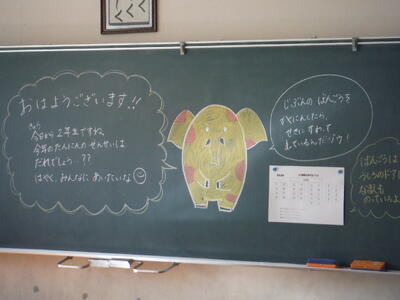 おはようございます!!
今日から2年生ですね。
今年のたんにんのせんせいは
だれでしょう…??
はやく、みんなにあいたいな
じぶんの ばんごうを
かくにんしたら、
せきにすわって
まっているんだゾウ!
ばんごうは
うしろのドアに